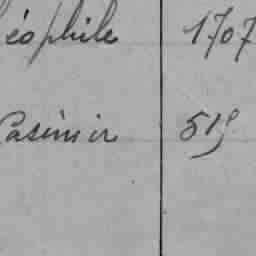 éophile 1707
Casimir 515